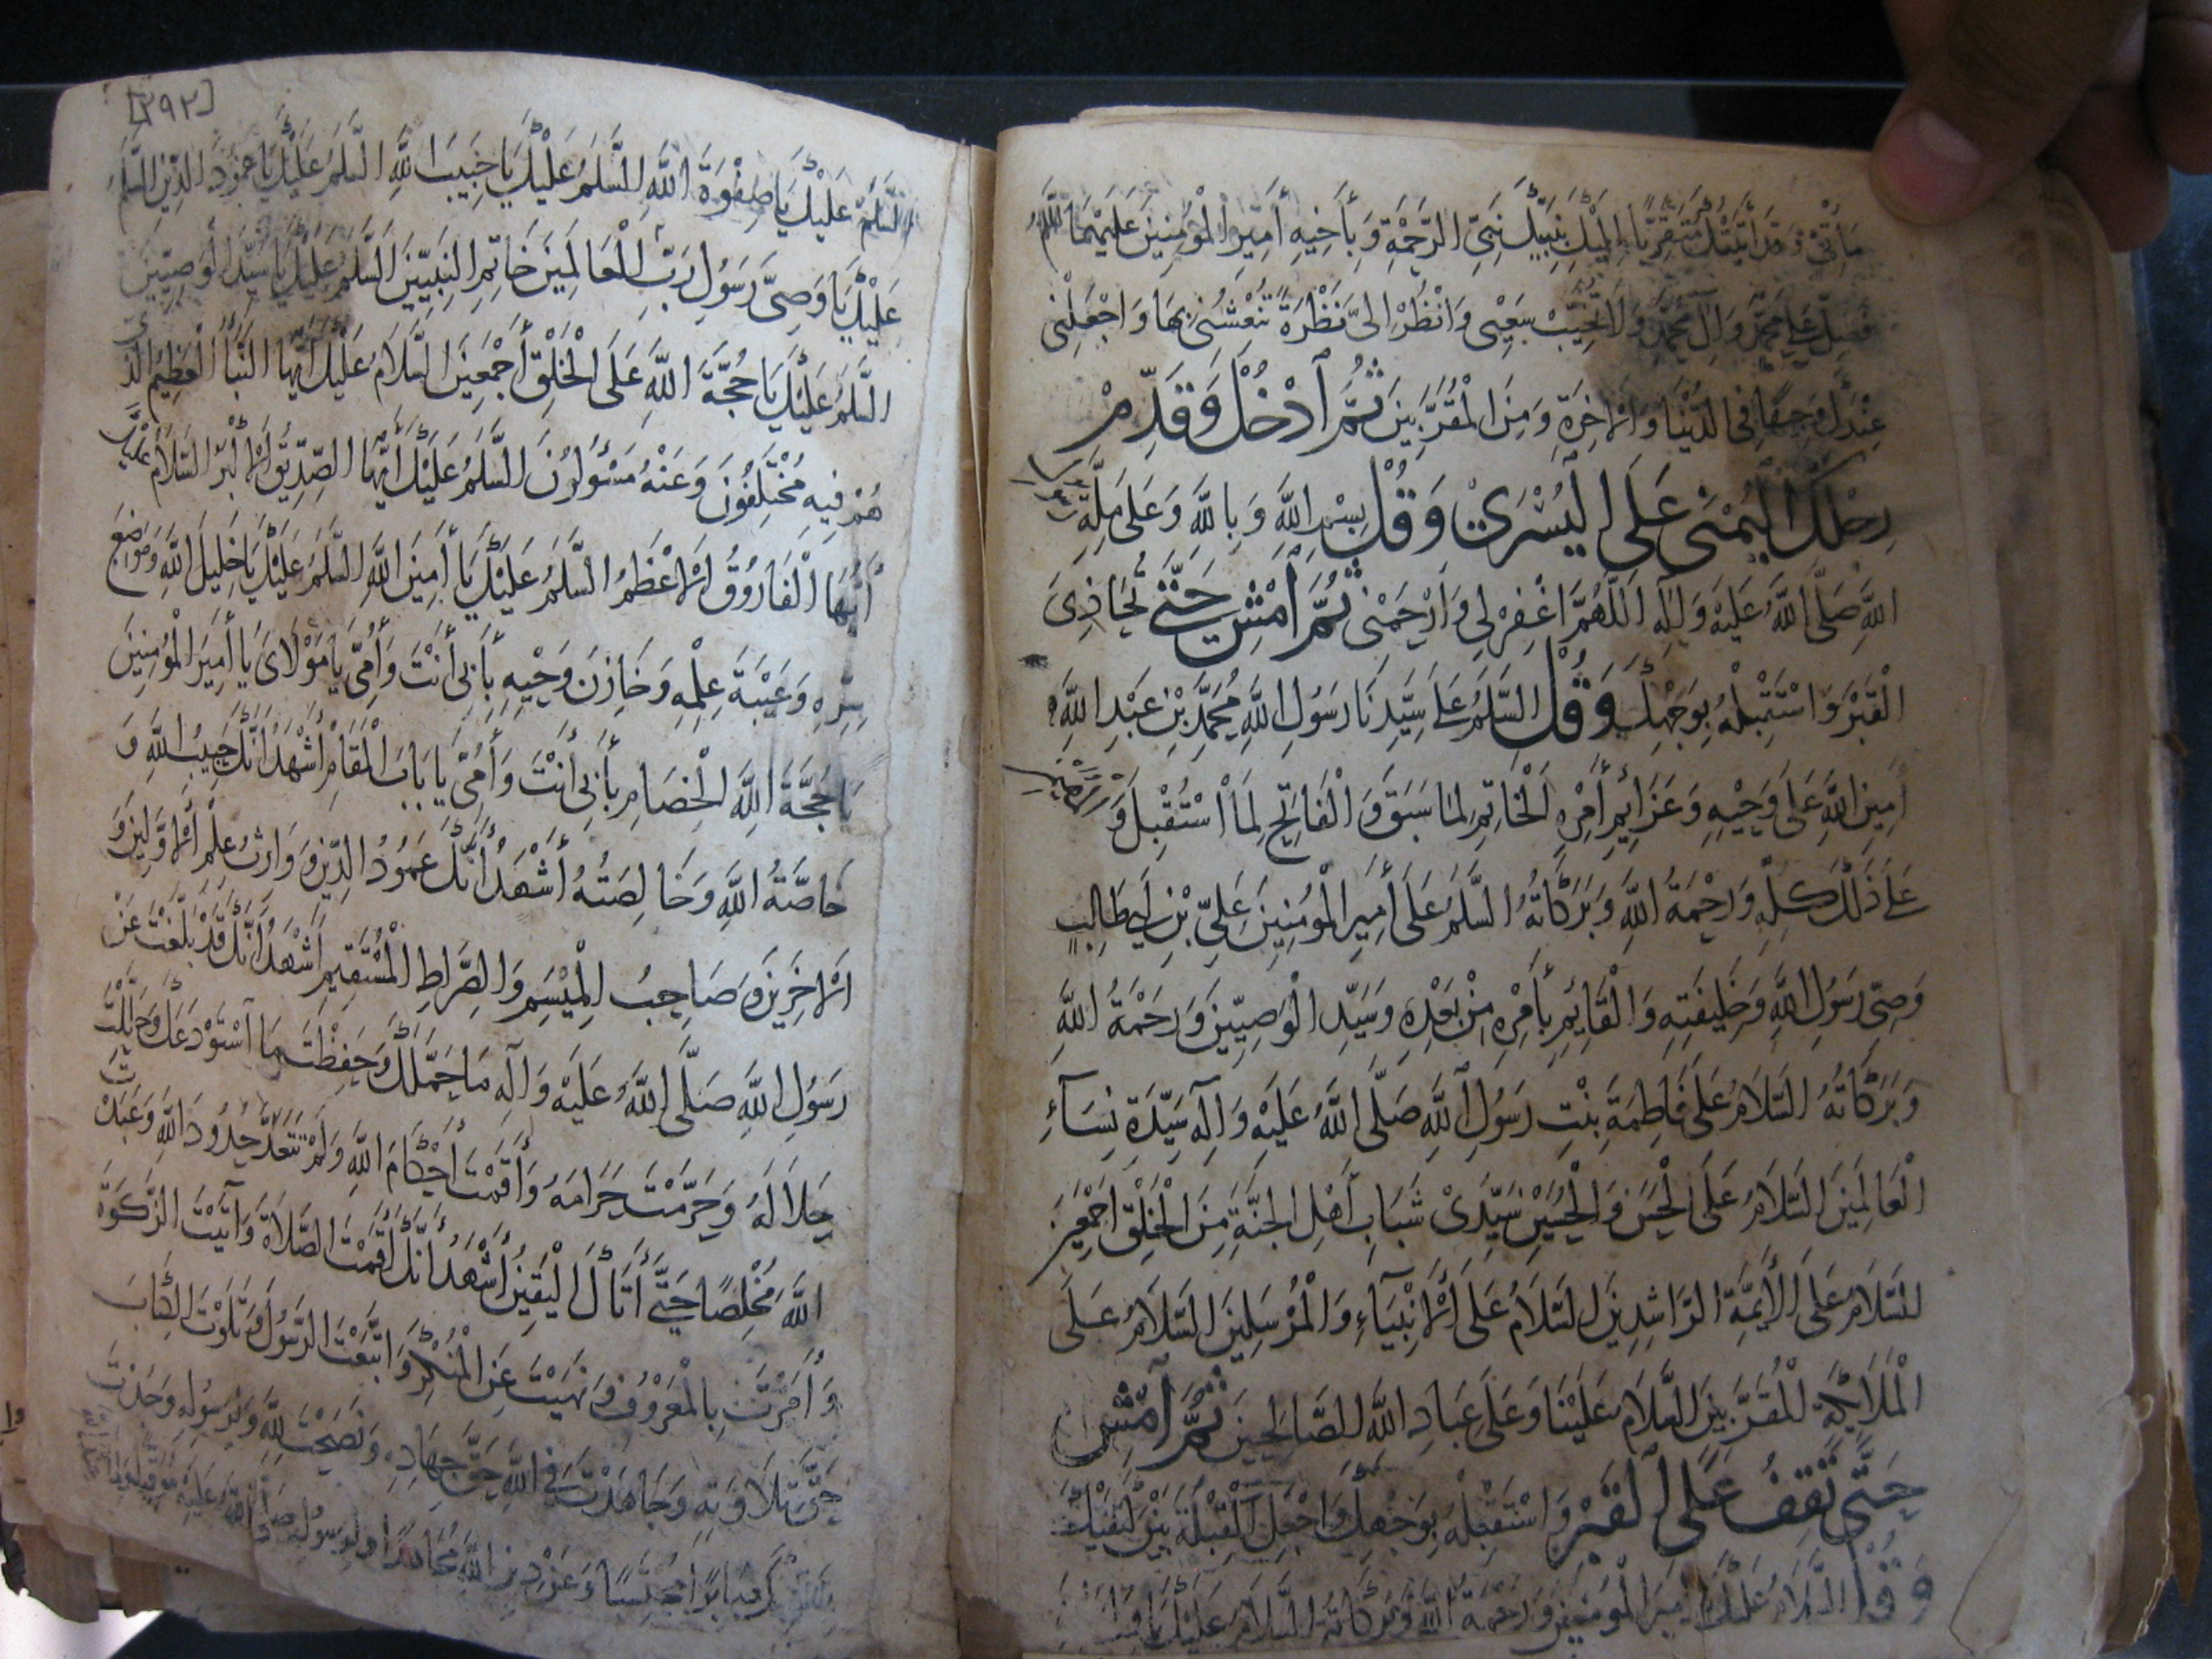 مَأْتِيٍّ وَقَدْ أَتَيْتُكَ مُتَقَرِّبًا إِلَيْكَ بِنَبِيِّكَ نَبِيِّ الرَّحْمَةِ وَبِأَخِيهِ أَمِيرِ الْمُؤْمِنِينَ عَلَيْهِمَا السَّلَمُ
فَصَلِّ عَلَى مُحَمَّدٍ وَآلِ مُحَمَّدٍ وَلَا تُخَيِّبْ سَعْيِي وَانْظُرْ إِلَيَّ نَظْرَةً تَنْعَشُنِي بِهَا وَاجْعَلْنِي
عِنْدَكَ وَجِيهًا فِي الدُّنْيَا وَالْآخِرَةِ وَمِنَ الْمُقَرَّبِينَ ثُمَّ ادْخُلْ وَقَدِّمْ
رِجْلَكَ الْيُمْنَى عَلَى الْيُسْرَى وَقُلْ بِسْمِ اللَّهِ وَبِاللَّهِ وَعَلَى مِلَّةِ رَسُولِ
اللَّهِ صَلَّى اللَّهُ عَلَيْهِ وَآلِهِ اَللَّهُمَّ اغْفِرْ لِي وَارْحَمْنِي ثُمَّ امْشِ حَتَّى تُحَاذِيَ
الْقَبْرَ وَاسْتَقْبِلْهُ بِوَجْهِكَ وَقُلْ السَّلَمُ عَلَى سَيِّدِنَا رَسُولِ اللَّهِ مُحَمَّدِ بْنِ عَبْدِ اللَّهِ
أَمِينِ اللَّهِ عَلَى وَحْيِهِ وَعَزَائِمِ أَمْرِهِ الْخَاتِمِ لِمَا سَبَقَ وَالْفَاتِحِ لِمَا اسْتُقْبِلَ وَالْمُهَيْمِنِ
عَلَى ذَلِكَ كُلِّهِ وَرَحْمَةُ اللَّهِ وَبَرَكَاتُهُ السَّلَمُ عَلَى أَمِيرِ الْمُؤْمِنِينَ عَلِيِّ بْنِ أَبِي طَالِبٍ
وَصِيِّ رَسُولِ اللَّهِ وَخَلِيفَتِهِ وَالْقَائِمِ بِأَمْرِهِ مِنْ بَعْدِهِ وَسَيِّدِ الْوَصِيِّينَ وَرَحْمَةُ اللَّهِ
وَبَرَكَاتُهُ السَّلَامُ عَلَى فَاطِمَةَ بِنْتِ رَسُولِ اللَّهِ صَلَّى اللَّهُ عَلَيْهِ وَآلِهِ سَيِّدَةِ نِسَاءِ
الْعَالَمِينَ السَّلَامُ عَلَى الْحَسَنِ وَالْحُسَيْنِ سَيِّدَيْ شَبَابِ أَهْلِ الْجَنَّةِ مِنَ الْخَلْقِ أَجْمَعِينَ
السَّلَامُ عَلَى الْأَئِمَّةِ الرَّاشِدِينَ السَّلَامُ عَلَى الْأَنْبِيَاءِ وَالْمُرْسَلِينَ السَّلَامُ عَلَى
الْمَلَائِكَةِ الْمُقَرَّبِينَ السَّلَامُ عَلَيْنَا وَعَلَى عِبَادِ اللَّهِ الصَّالِحِينَ ثُمَّ امْشِ
حَتَّى تَقِفَ عَلَى الْقَبْرِ وَاسْتَقْبِلْهُ بِوَجْهِكَ وَاجْعَلِ الْقِبْلَةَ بَيْنَ كَتِفَيْكَ
وَقُلْ السَّلَامُ عَلَيْكَ يَا أَمِيرَ الْمُؤْمِنِينَ وَرَحْمَةُ اللَّهِ وَبَرَكَاتُهُ السَّلَامُ عَلَيْكَ يَا
[٢٩٢]
السَّلَمُ عَلَيْكَ يَا صِفْوَةَ اللَّهِ السَّلَمُ عَلَيْكَ يَا حَبِيبَ اللَّهِ السَّلَمُ عَلَيْكَ يَا عَمُودَ الدِّينِ السَّلَمُ
عَلَيْكَ يَا وَصِيَّ رَسُولِ رَبِّ الْعَالَمِينَ خَاتِمِ النَّبِيِّينَ السَّلَمُ عَلَيْكَ يَا سَيِّدَ الْوَصِيِّينَ
السَّلَمُ عَلَيْكَ يَا حُجَّةَ اللَّهِ عَلَى الْخَلْقِ أَجْمَعِينَ السَّلَامُ عَلَيْكَ أَيُّهَا النَّبَأُ الْعَظِيمُ الَّذِي
هُمْ فِيهِ مُخْتَلِفُونَ وَعَنْهُ مَسْؤُلُونَ السَّلَمُ عَلَيْكَ أَيُّهَا الصِّدِّيقُ الْأَكْبَرُ السَّلَامُ عَلَيْكَ
أَيُّهَا الْفَارُوقُ الْأَعْظَمُ السَّلَمُ عَلَيْكَ يَا أَمِينَ اللَّهِ السَّلَمُ عَلَيْكَ يَا خَلِيلَ اللَّهِ وَمَوْضِعَ
سِرِّهِ وَعَيْبَةَ عِلْمِهِ وَخَازِنَ وَحْيِهِ بِأَبِي أَنْتَ وَأُمِّي يَا مَوْلَايَ يَا أَمِيرَ الْمُؤْمِنِينَ
يَا حُجَّةَ اللَّهِ الْخِصَامِ بِأَبِي أَنْتَ وَأُمِّي يَا بَابَ الْمَقَامِ أَشْهَدُ أَنَّكَ حَبِيبُ اللَّهِ وَ
خَاصَّةُ اللَّهِ وَخَالِصَتُهُ أَشْهَدُ أَنَّكَ عَمُودُ الدِّينِ وَوَارِثُ عِلْمِ الْأَوَّلِينَ وَ
الْآخِرِينَ وَصَاحِبُ الْمِيْسَمِ وَالصِّرَاطِ الْمُسْتَقِيمِ أَشْهَدُ أَنَّكَ قَدْ بَلَّغْتَ عَنْ
رَسُولِ اللَّهِ صَلَّى اللَّهُ عَلَيْهِ وَآلِهِ مَا حَمَّلَكَ وَحَفِظْتَ مَا اسْتَوْدَعَكَ وَحَلَّلْتَ
حَلَالَهُ وَحَرَّمْتَ حَرَامَهُ وَأَقَمْتَ أَحْكَامَ اللَّهِ وَلَمْ تَتَعَدَّ حُدُودَ اللَّهِ وَعَبَدْتَ
اللَّهَ مُخْلِصًا حَتَّى أَتَاكَ الْيَقِينُ أَشْهَدُ أَنَّكَ أَقَمْتَ الصَّلَاةَ وَآتَيْتَ الزَّكَوةَ
وَأَمَرْتَ بِالْمَعْرُوفِ وَنَهَيْتَ عَنِ الْمُنْكَرِ وَاتَّبَعْتَ الرَّسُولَ وَتَلَوْتَ الْكِتَابَ
حَقَّ تِلَاوَتِهِ وَجَاهَدْتَ فِي اللَّهِ حَقَّ جِهَادِهِ وَنَصَحْتَ لِلَّهِ وَلِرَسُولِهِ وَجُدْتَ
بِنَفْسِكَ صَابِرًا مُحْتَسِبًا وَعَنْ دِينِ اللَّهِ مُجَاهِدًا وَلِرَسُولِهِ صَلَّى اللَّهُ عَلَيْهِ